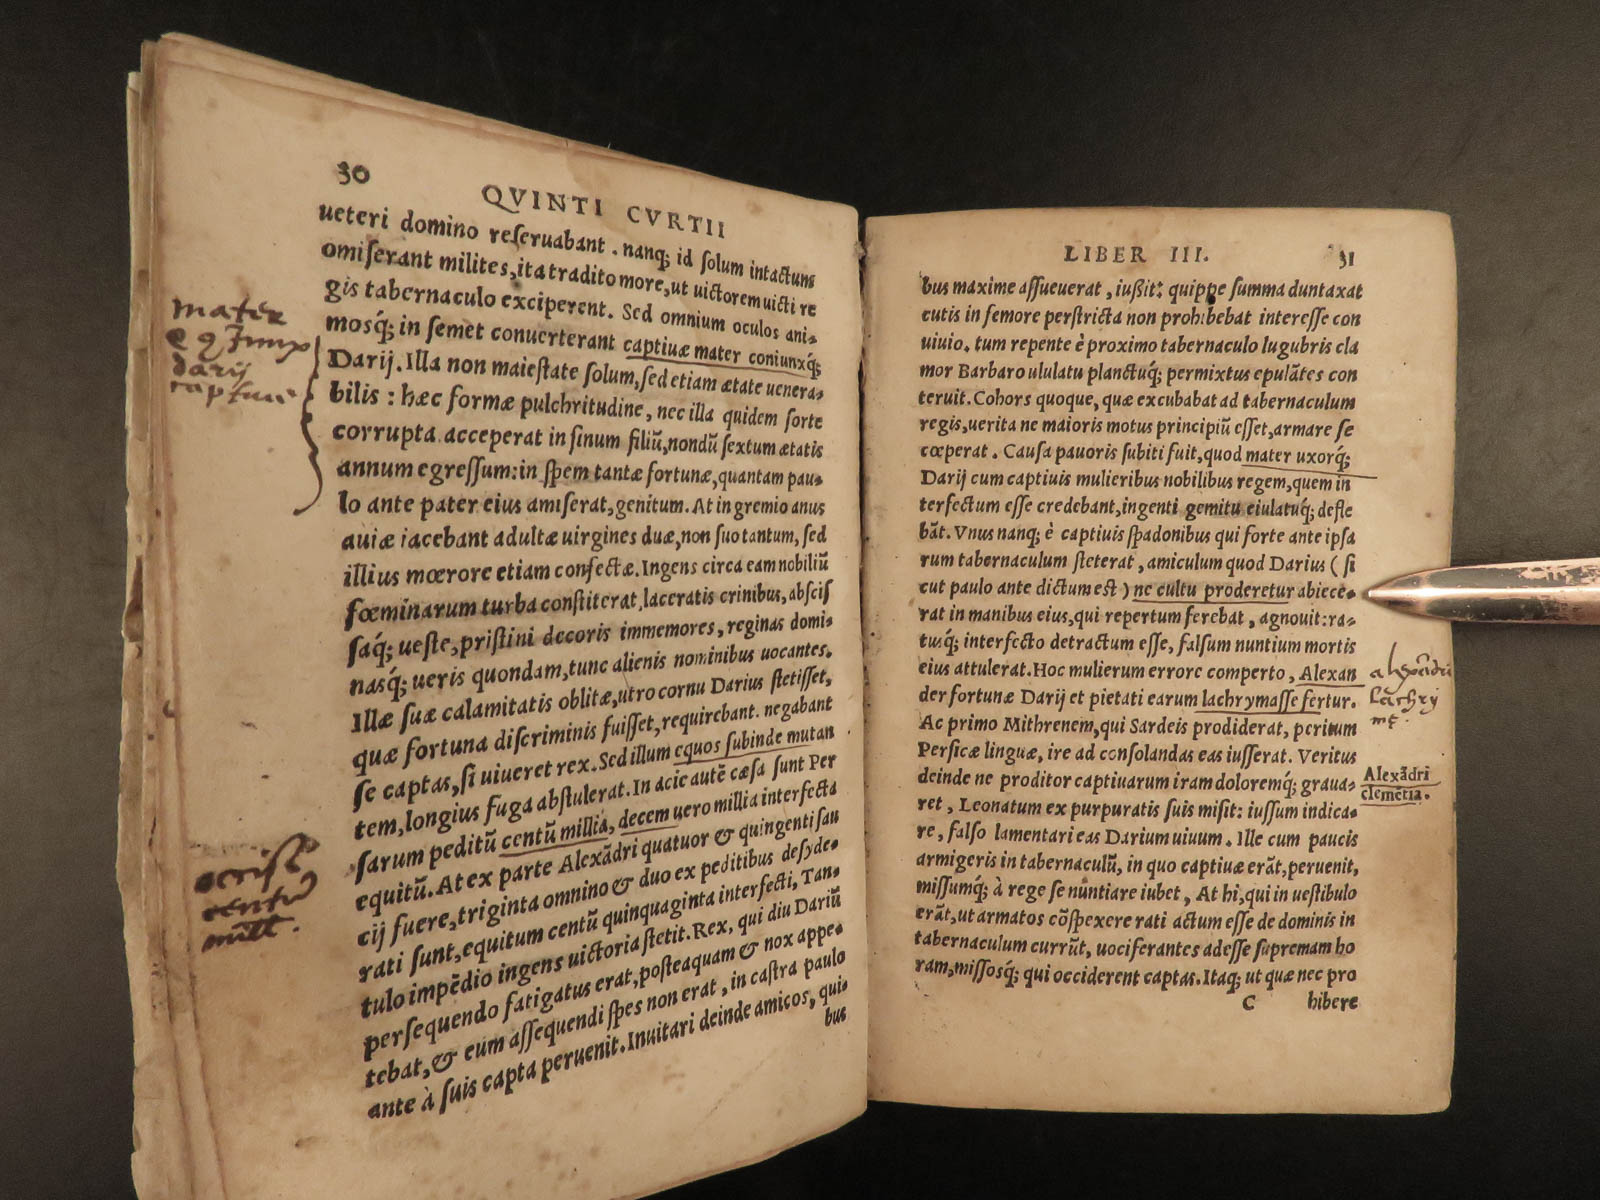 30
QVINTI CVRTII
ueteri domino reſeruabant . nanq; id ſolum intactum
omiſerant milites, ita tradito more, ut uictorem uicti re
gis tabernaculo exciperent. Sed omnium oculos ani-
mosq́; in ſemet conuerterant captiuæ mater coniunxq́;
Darij. Illa non maieſtate ſolum, ſed etiam ætate uenera-
bilis : hæc formæ pulchritudine, nec illa quidem ſorte
corrupta acceperat in ſinum filiũ, nondũ ſextum ætatis
annum egreſſum: in ſpem tantæ fortunæ, quantam pau-
lo ante pater eius amiſerat, genitum. At in gremio anus
auiæ iacebant adultæ uirgines duæ, non ſuo tantum, ſed
illius mœrore etiam confectæ. Ingens circa eam nobiliũ
fœminarum turba conſtiterat, laceratis crinibus, abſciſ
ſaq́; ueſte, priſtini decoris immemores, reginas domi-
nasq́; ueris quondam, tunc alienis nominibus uocantes.
Illæ ſuæ calamitatis oblitæ, utro cornu Darius ſtetiſſet,
quæ fortuna diſcriminis fuiſſet, requirebant. negabant
ſe captas, ſi uiueret rex. Sed illum equos ſubinde mutan
tem, longius fuga abſtulerat. In acie autẽ cæſa ſunt Per
ſarum peditũ centũ millia, decem uero millia interfecta
equitũ. At ex parte Alexãdri quatuor & quingenti ſau
cij fuere, triginta omnino & duo ex peditibus deſyde-
rati ſunt, equitum centũ quinquaginta interfecti, Tan-
tulo impẽdio ingens uictoria ſtetit. Rex, qui diu Dariũ
perſequendo fatigatus erat, poſteaquam & nox appe-
tebat, & eum aſſequendi ſpes non erat, in caſtra paulo
ante à ſuis capta peruenit. Inuitari deinde amicos, qui-
bus
mater
darij
captiue
centũ
mill.
LIBER III.
31
bus maxime aſſueuerat, iußit: quippe ſumma duntaxat
cutis in femore perſtricta non prohibebat intereſſe con
uiuio. tum repente è proximo tabernaculo lugubris cla
mor Barbaro ululatu planctuq́; permixtus epulãtes con
teruit. Cohors quoque, quæ excubabat ad tabernaculum
regis, uerita ne maioris motus principiũ eſſet, armare ſe
cœperat . Cauſa pauoris ſubiti fuit, quod mater uxorq́;
Darij cum captiuis mulieribus nobilibus regem, quem in
terfectum eſſe credebant, ingenti gemitu eiulatuq́; defle
bãt. Vnus nanq; è captiuis ſpadonibus qui forte ante ipſa
rum tabernaculum ſteterat, amiculum quod Darius ( ſi
cut paulo ante dictum eſt ) ne cultu proderetur abiece-
rat in manibus eius, qui repertum ferebat, agnouit: ra-
tusq́; interfecto detractum eſſe, falſum nuntium mortis
eius attulerat. Hoc mulierum errore comperto, Alexan
der fortunæ Darij et pietati earum lachrymaſſe fertur.
Ac primo Mithrenem, qui Sardeis prodiderat, peritum
Perſicæ linguæ, ire ad conſolandas eas iuſſerat. Veritus
deinde ne proditor captiuarum iram doloremq́; graua-
ret , Leonatum ex purpuratis ſuis miſit: iuſſum indica-
re, falſo lamentari eas Darium uiuum . Ille cum paucis
armigeris in tabernaculũ, in quo captiuæ erãt, peruenit,
miſſumq́; à rege ſe nũntiare iubet, At hi, qui in ueſtibulo
erãt, ut armatos cõſpexere rati actum eſſe de dominis in
tabernaculum currũt, uociferantes adeſſe ſupremam ho
ram, miſſosq́; qui occiderent captas. Itaq; ut quæ nec pro
C hibere
Lachry
mę.
Alexãdri
clemẽtia.